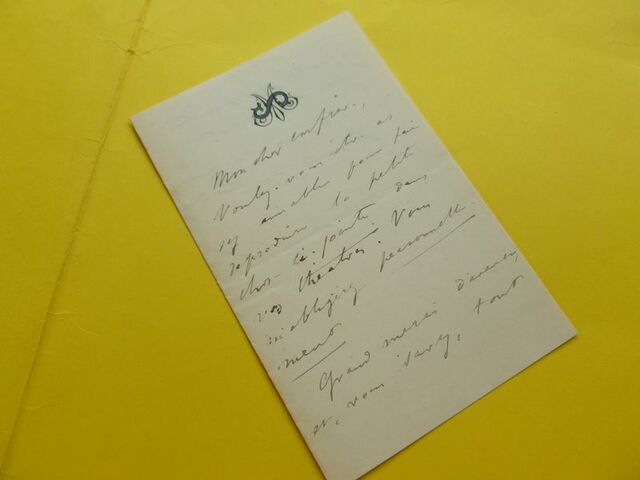 Mon cher confrère,
Voulez-vous être as
sez aimable pour faire
reproduire la petite
chose ci-jointe dans
vos théâtres. Vous
m'obligerez personnelle
ment.
Grand merci d'avance,
et, vous savez, tout